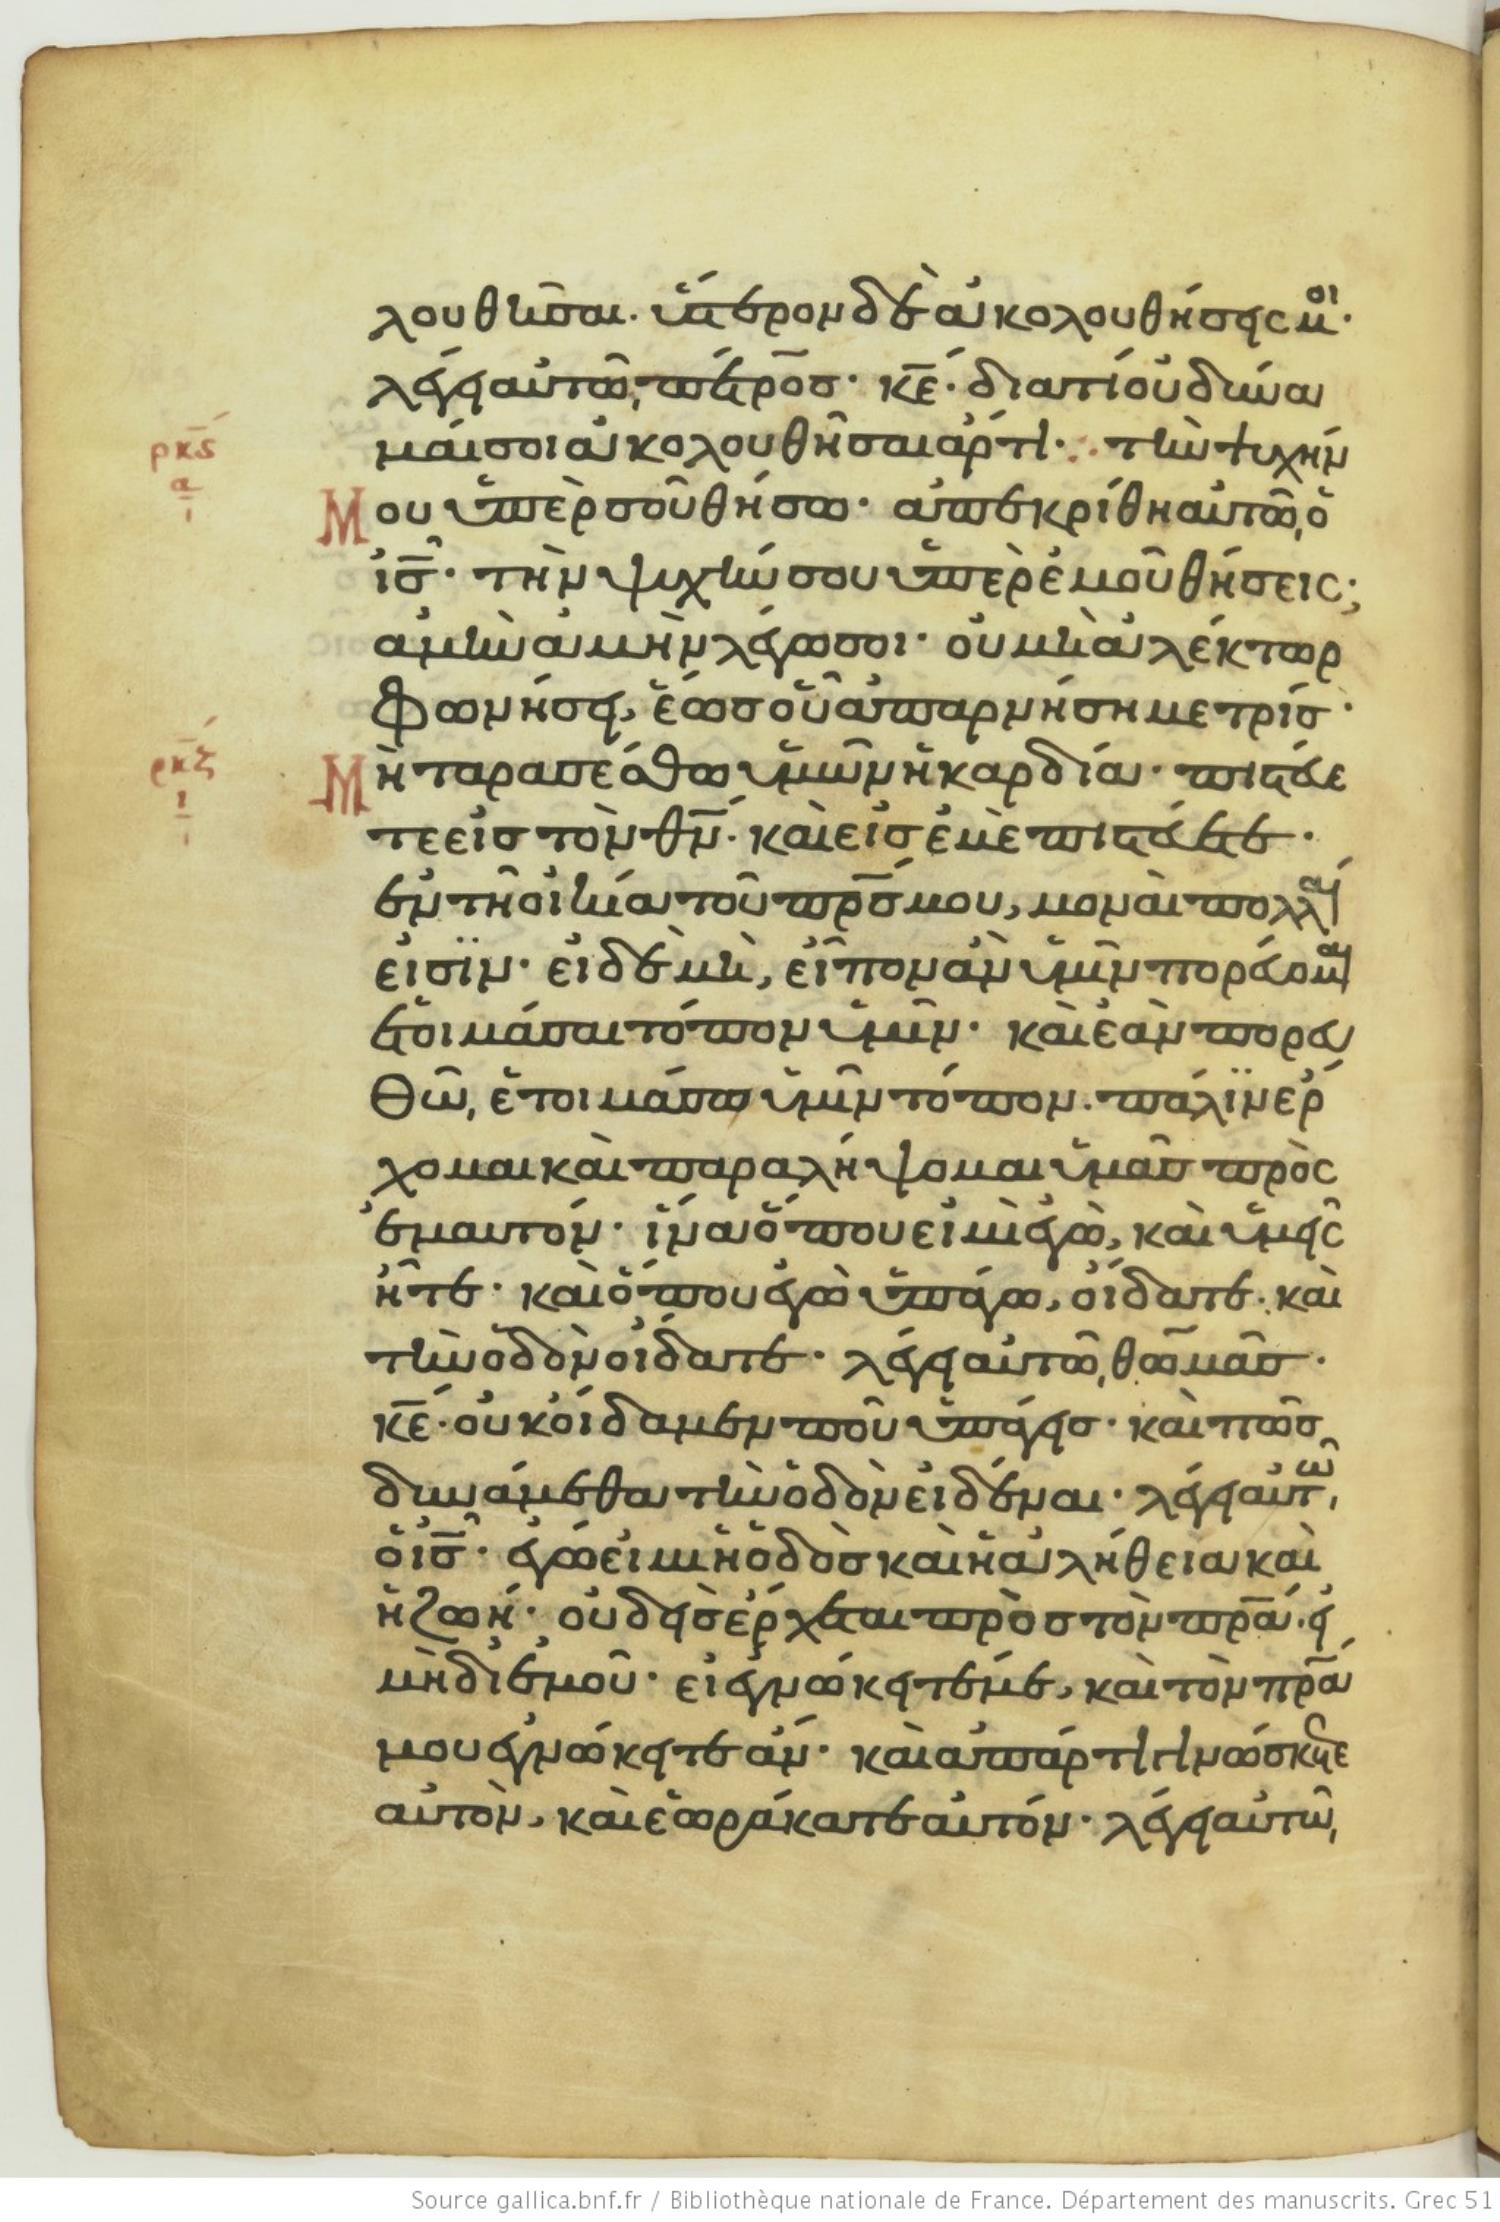 λουθῆσαι· ὕστερον δὲ ἀκολουθήσεις μοι·
λέγει αὐτῶ, πέτρος· κ̅ε̅· διατί οὐ δύνα
μαί σοι ἀκολουθῆσαι ἄρτι· τὴν ψυχήν
ρκϛ
α
ι
Μου ὑπὲρ σοῦ θήσω· ἀπεκρίθη αὐτῶ, ὁ
ι̅ς̅· τὴν ψυχήν σου ὑπὲρ ἐμοῦ θήσεις;
ἀμὴν ἀμὴν λέγω σοι· οὐ μὴ ἀλέκτωρ
φωνήσει, ἕως οὗ ἀπαρνήση με τρίς·
ρκζ
ι
ι
Μὴ ταρασσέσθω ὑμῶν ἡ καρδία· πιστεύε
τε εἰς τὸν θ̅ν̅· καὶ εἰς ἐμὲ πιστεύετε·
ἐν τῆ οἰκία τοῦ π̅ρ̅ς̅ μου, μοναὶ πολλαί
εἰσϊν· εἰ δὲ μὴ, εἶπον ἂν ὑμῖν πορεύομαι
ἑτοιμάσαι τόπον ὑμῖν· καὶ ἐὰν πορευ
θῶ, ἑτοιμάσω ὑμῖν τόπον· πάλϊν ἔρ
χομαι καὶ παραλήψομαι ὑμᾶς πρὸς
ἐμαυτόν· ἵνα ὅπου εἰμὶ ἐγὼ, καὶ ὑμεῖς
ἦτε· καὶ ὅπου ἐγὼ ὑπάγω, οἴδατε· καὶ
τὴν ὁδὸν οἴδατε· λέγει αὐτῶ, θωμᾶς·
κ̅ε̅· οὐκ οἴδαμεν ποῦ ὑπάγεις· καὶ πῶς
δυνάμεθα τὴν ὁδὸν εἰδέναι· λέγει αὐτῶ,
ὁ ι̅ς̅· ἐγώ εἰμι ἡ ὁδὸς καὶ ἡ ἀλήθεια καὶ
ἡ ζωή· οὐδεὶς ἔρχεται πρὸς τὸν π̅ρ̅α̅· εἰ
μὴ δι ἐμοῦ· εἰ ἐγνώκειτέ με, καὶ τὸν π̅ρ̅α̅
μου ἐγνώκειτε ἄν· καὶ ἀπάρτι γινώσκετε
αὐτὸν, καὶ ἑωράκατε αὐτόν· λέγει αὐτῶ,
Source gallica.bnf.fr / Bibliothèque nationale de France. Département des manuscrits. Grec 51